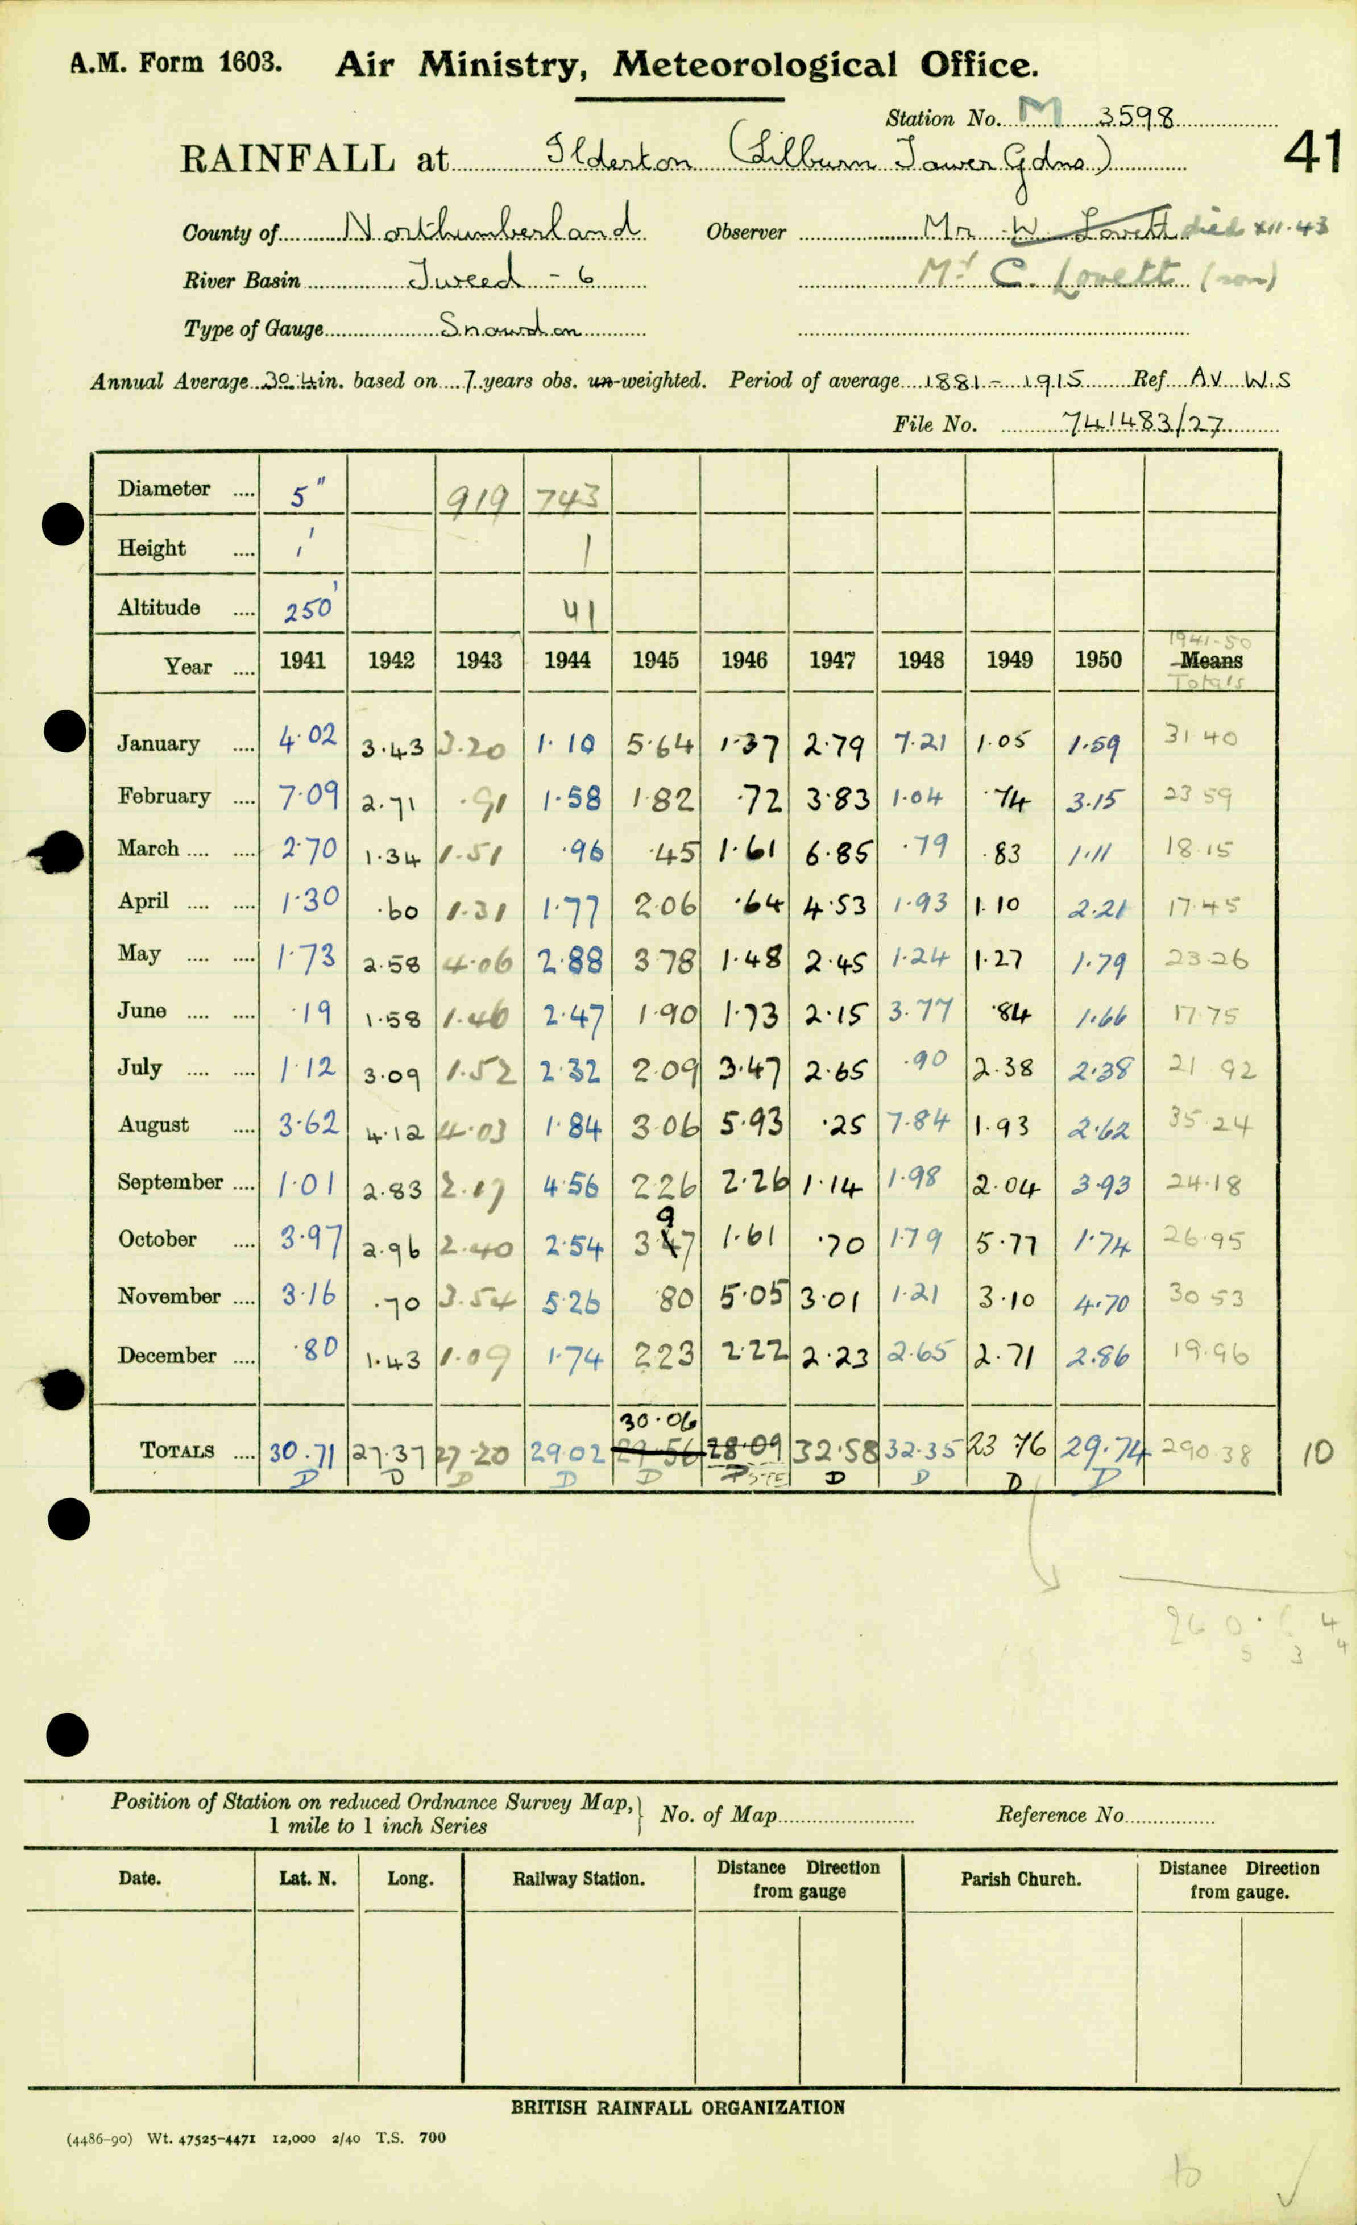 A.M. Form 1603. Air Ministry, Meteorological Office.
Station No. M 3598
RAINFALL at Ilderton (Lilburn Tower Gdns) 41
County of Northumberland Observer Mr W. Lovett died XII.43
River Basin Tweed - 6 Mr C. Lovett (son)
Type of Gauge Snowdon
Annual Average 30.4 in. based on 7 years obs. un-weighted. Period of average 1881 - 1915 Ref AV W.S
File No. 741483/27
Diameter .... 5" 919 743
Height .... 1' 1
Altitude .... 250' 41
1941-50
Year .... 1941 1942 1943 1944 1945 1946 1947 1948 1949 1950 Means
Totals
January .... 4.02 3.43 3.20 1.10 5.64 1.37 2.79 7.21 1.05 1.59 31.40
February .... 7.09 2.71 .91 1.58 1.82 .72 3.83 1.04 .74 3.15 23.59
March .... .... 2.70 1.34 1.51 .96 .45 1.61 6.85 .79 .83 1.11 18.15
April .... .... 1.30 .60 1.31 1.77 2.06 .64 4.53 1.93 1.10 2.21 17.45
May .... .... 1.73 2.58 4.06 2.88 3.78 1.48 2.45 1.24 1.27 1.79 23.26
June .... .... .19 1.58 1.46 2.47 1.90 1.73 2.15 3.77 .84 1.66 17.75
July .... .... 1.12 3.09 1.52 2.32 2.09 3.47 2.65 .90 2.38 2.38 21 92
August .... 3.62 4.12 4.03 1.84 3.06 5.93 .25 7.84 1.93 2.62 35.24
September .... 1.01 2.83 2.17 4.56 2.26 2.26 1.14 1.98 2.04 3.93 24.18
October .... 3.97 2.96 2.40 2.54 3.97 1.61 .70 1.79 5.77 1.74 26.95
November .... 3.16 .70 3.54 5.26 .80 5.05 3.01 1.21 3.10 4.70 30 53
December .... .80 1.43 1.09 1.74 2.23 2.22 2.23 2.65 2.71 2.86 19.96
30.06
TOTALS .... 30.71 27.37 27.20 29.02 29.56 28.09 32.58 32.35 23 76 29.74 290.38 10
D D D D D D D D D
Position of Station on reduced Ordnance Survey Map, } No. of Map Reference No.
1 mile to 1 inch Series
Date. Lat. N. Long. Railway Station. Distance Direction from gauge Parish Church. Distance Direction from gauge.
BRITISH RAINFALL ORGANIZATION
(4486-90) Wt. 47525-4471 12,000 2/40 T.S. 700